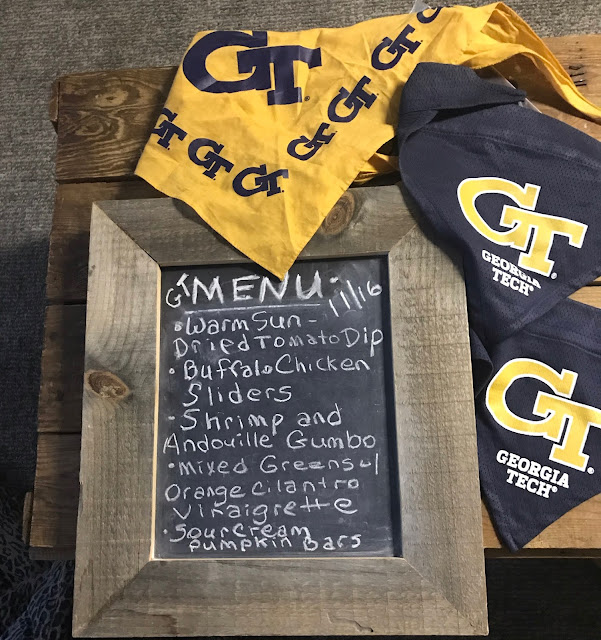 GT
GT
GT
GT
GT
GT
GT
GT
GEORGIA
TECH
GT
GEORGIA
TECH
GT MENU
11/16
• Warm Sun-
Dried Tomato Dip
• Buffalo Chicken
Sliders
- Shrimp and
Andouille Gumbo
• Mixed Greens w/
Orange Cilantro
Vinaigrette
• Sour Cream
Pumpkin Bars